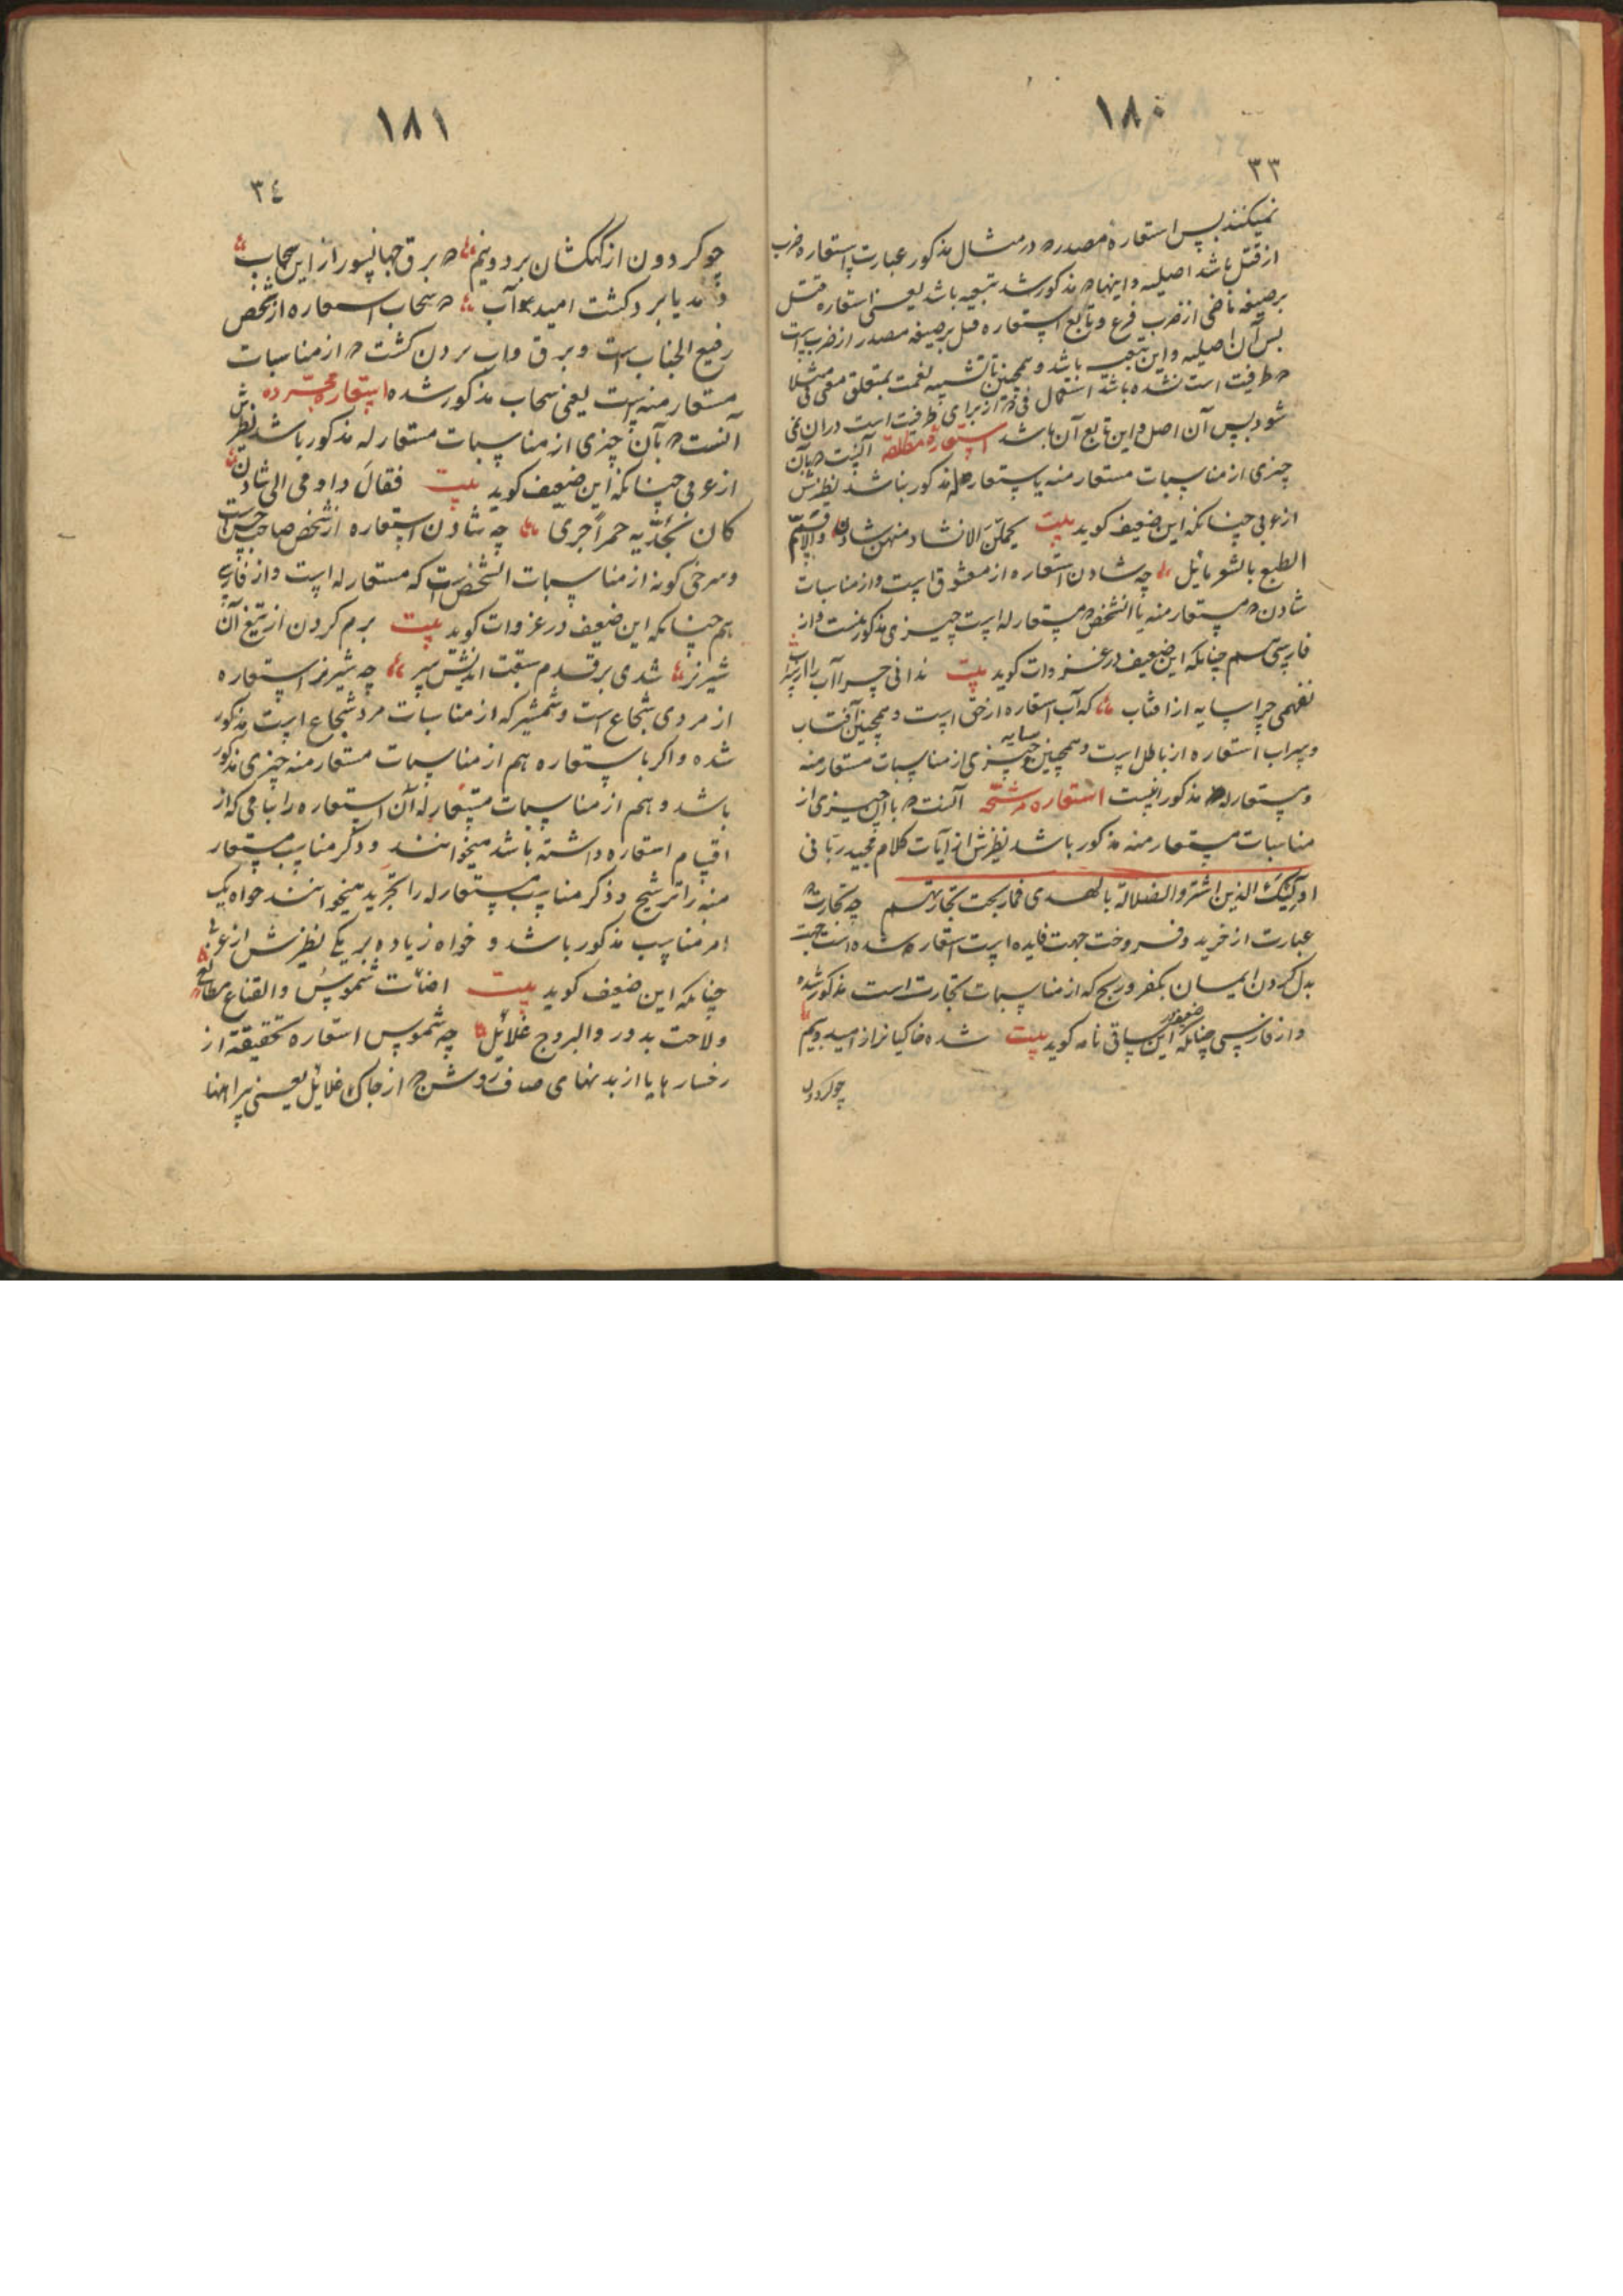 ١٨٠
٣٣
نمیکنند پس استعارهٔ مصدر که در مثال مذکور عبارت استعاره ضرب
از قتل باشد اصلیه و اینها که مذکور شد تبعیه باشد یعنی استعاره قتل
بر صیغه ماضی از ضرب فرع و تابع استعاره قتل بر صیغه مصدر از ضرب است
پس آن اصلیه و این تبعیه باشد و همچنین تا تشبیه نعمت بمتعلق معنی فی مثلا
که ظرفیت است نشده باشد استعمال فی که از برای ظرفیت است در آن نمی
شود پس آن اصل و این تابع آن باشد استعارهٔ مطلقه آنست که بآن
چیزی از مناسبات مستعار منه یا مستعار له مذکور نباشد نظیرش
از عربی چنانکه این ضعیف کوید بیت یحملن الانشاد منهن شادن
الطبع بالشو مایل چه شادن استعاره از معشوق است و از مناسبات
شادن که مستعار منه یا انشخص که مستعار له است چیزی مذکور نیست و از
فارسی هم چنانکه این ضعیف در غزوات کوید بیت ندانی چرا آب را از سراب
نفهمی چرا سایه از افتاب که آب استعاره از حق است و همچنین آفتاب
و سراب استعاره از باطل است و همچنین سایه و چیزی از مناسبات مستعار منه
و مستعار له مذکور نیست استعاره مرشحه آنست که با آن چیزی از
مناسبات مستعار منه مذکور باشد نظیرش از آیات کلام مجید ربانی
اولَئِکَ الذین اشتروا الضلالة بالهدی فما ربحت تجارتهم چه تجارت که
عبارت از خرید و فروخت جهت فایده است استعاره شده است جهت
بدل کردن ایمان بکفر و ربح که از مناسبات تجارت است مذکور شده
و از فارسی چنانکه این ضعیف در ساقی نامه کوید بیت شده خاکیانرا ز امید و بیم
چو کردون
١٨١
٣٤
چو کردون از کهکشان بر دو نیم که برق جهانسوز از این سحاب
دمد یا برد کشت امید آب که سحاب استعاره از شخص
رفیع الجناب است و برق و آب بردن کشت که از مناسبات
مستعار منه است یعنی سحاب مذکور شده استعارهٔ مجرده
آنست که بآن چیزی از مناسبات مستعار له مذکور باشد نظیرش
از عربی چنانکه این ضعیف کوید بیت فقالَ داومی الی شادن
کان بخدّیه حمراً جری چه شادن استعاره از شخص صاحب حسن است
و سرخی کونه از مناسبات انشخص است که مستعار له است و از فارسی
هم چنانکه این ضعیف در غزوات کوید بیت برم کردن از تیغ آن
شیر نر شدی بر قدم سبقت اندیش سر چه شیر نر استعاره
از مردی شجاع است و شمشیر که از مناسبات مرد شجاع است مذکور
شده و اکر با استعاره هم از مناسبات مستعار منه چیزی مذکور
باشد و هم از مناسبات مستعار له آن استعاره را بنامی که از
اقسام استعاره داشته باشد میخوانند و ذکر مناسب مستعار
منه را ترشیح و ذکر مناسب مستعار له را تجرید میخوانند خواه یک
امر مناسب مذکور باشد و خواه زیاده بر یکی نظیرش از عربی
چنانکه این ضعیف کوید بیت اضائت شموسٌ والقناع مطالع
ولاحت بدور والبروج غلائل چه شموس استعاره تحقیقیة از
رخسارها یا از بدنهای صاف روشن که از چاک غلایل یعنی پیراهنها